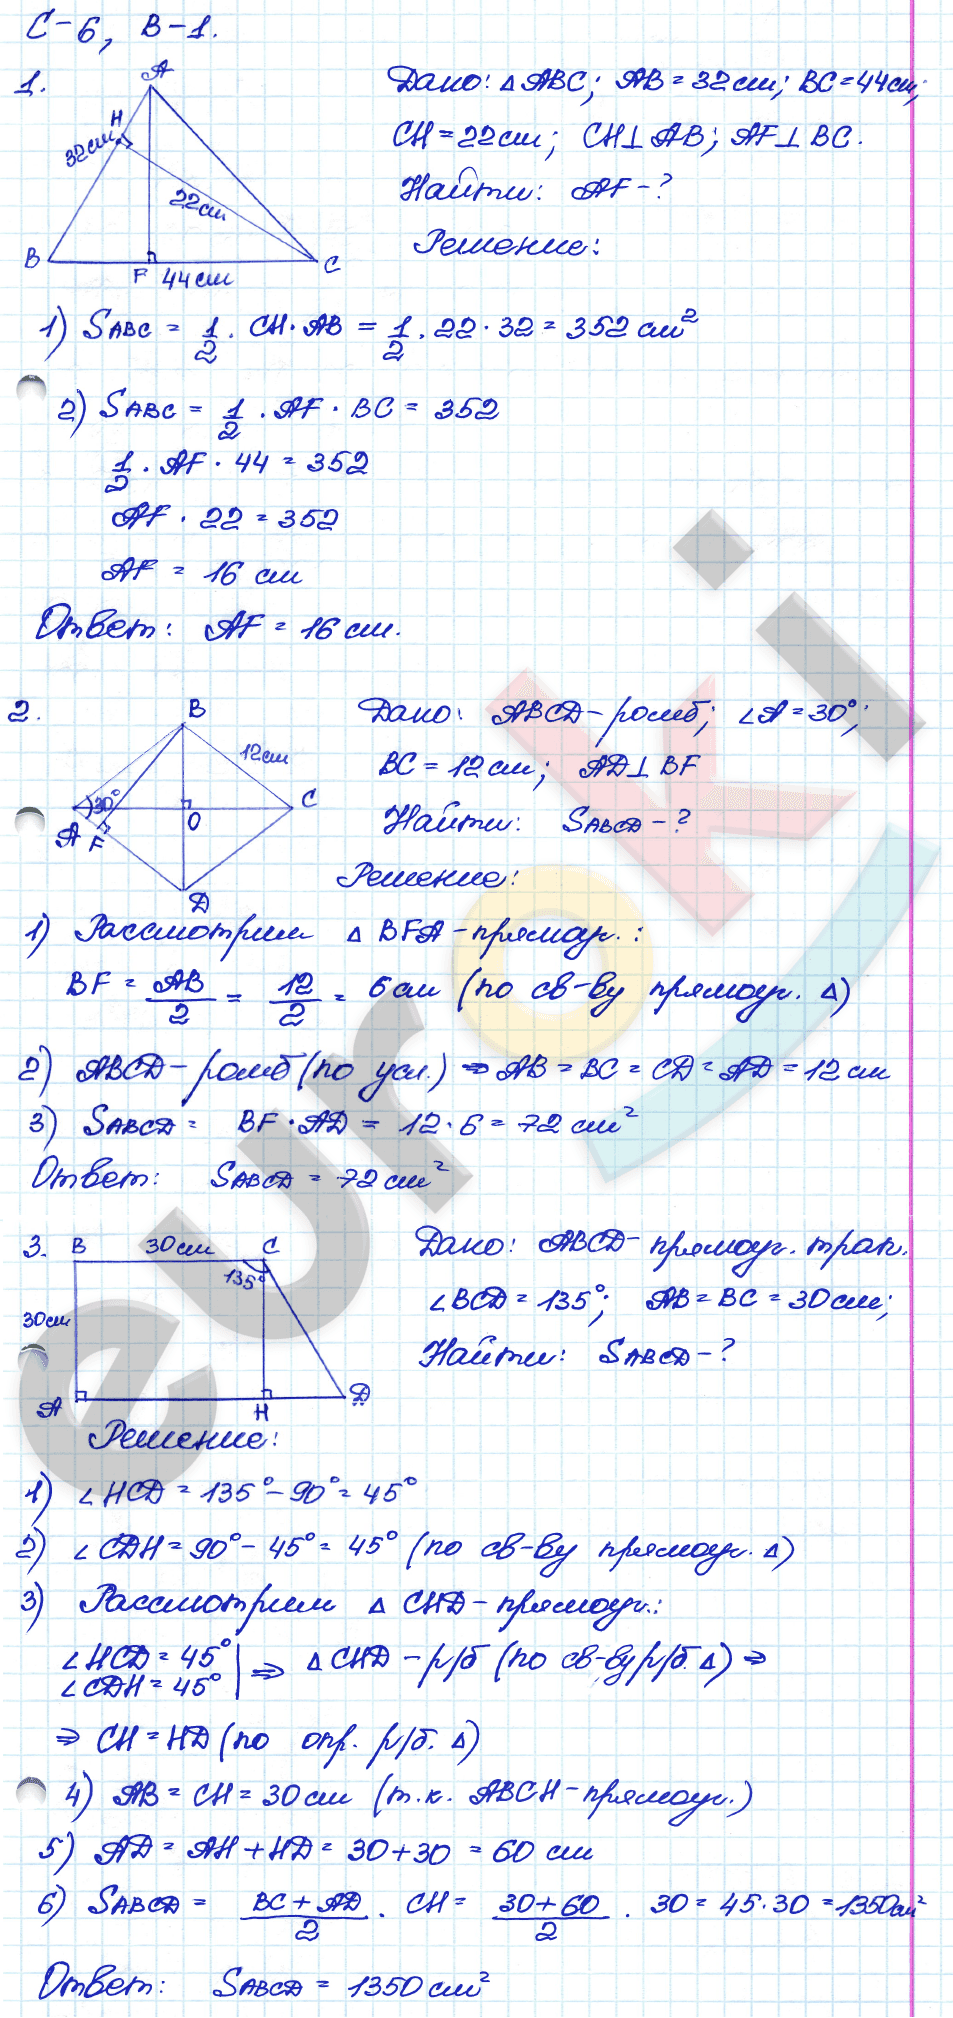 С-6, В-1.
1.
A
H
32см
22см
B
F
44см
C
Дано: △ABC; AB = 32см; BC = 44см;
CH = 22см; CH⊥AB; AF⊥BC.
Найти: AF - ?
Решение:
1) SABC = 1/2 · CH · AB = 1/2 · 22 · 32 = 352 см²
2) SABC = 1/2 · AF · BC = 352
1/2 · AF · 44 = 352
AF · 22 = 352
AF = 16 см
Ответ: AF = 16 см.
2.
B
12см
30°
C
A
F
O
D
Дано: ABCD - ромб; ∠A = 30°;
BC = 12см; AD⊥BF
Найти: SABCD - ?
Решение:
1) Рассмотрим △BFA - прямоуг. :
BF = AB/2 = 12/2 = 6см (по св-ву прямоуг. △)
2) ABCD - ромб (по усл.) ⇒ AB = BC = CD = AD = 12 см
3) SABCD = BF · AD = 12 · 6 = 72 см²
Ответ: SABCD = 72 см²
3.
B
30см
C
135°
30см
A
H
D
Дано: ABCD - прямоуг. трап.
∠BCD = 135°; AB = BC = 30см;
Найти: SABCD - ?
Решение:
1) ∠HCD = 135° - 90° = 45°
2) ∠CDH = 90° - 45° = 45° (по св-ву прямоуг. △)
3) Рассмотрим △CHD - прямоуг.:
∠HCD = 45°
∠CDH = 45° | ⇒ △CHD - р/б (по св-ву р/б. △) ⇒
⇒ CH = HD (по опр. р/б. △)
4) AB = CH = 30 см (т.к. ABCH - прямоуг.)
5) AD = AH + HD = 30 + 30 = 60 см
6) SABCD = BC + AD/2 · CH = 30 + 60/2 · 30 = 45 · 30 = 1350см²
Ответ: SABCD = 1350 см²
euroki